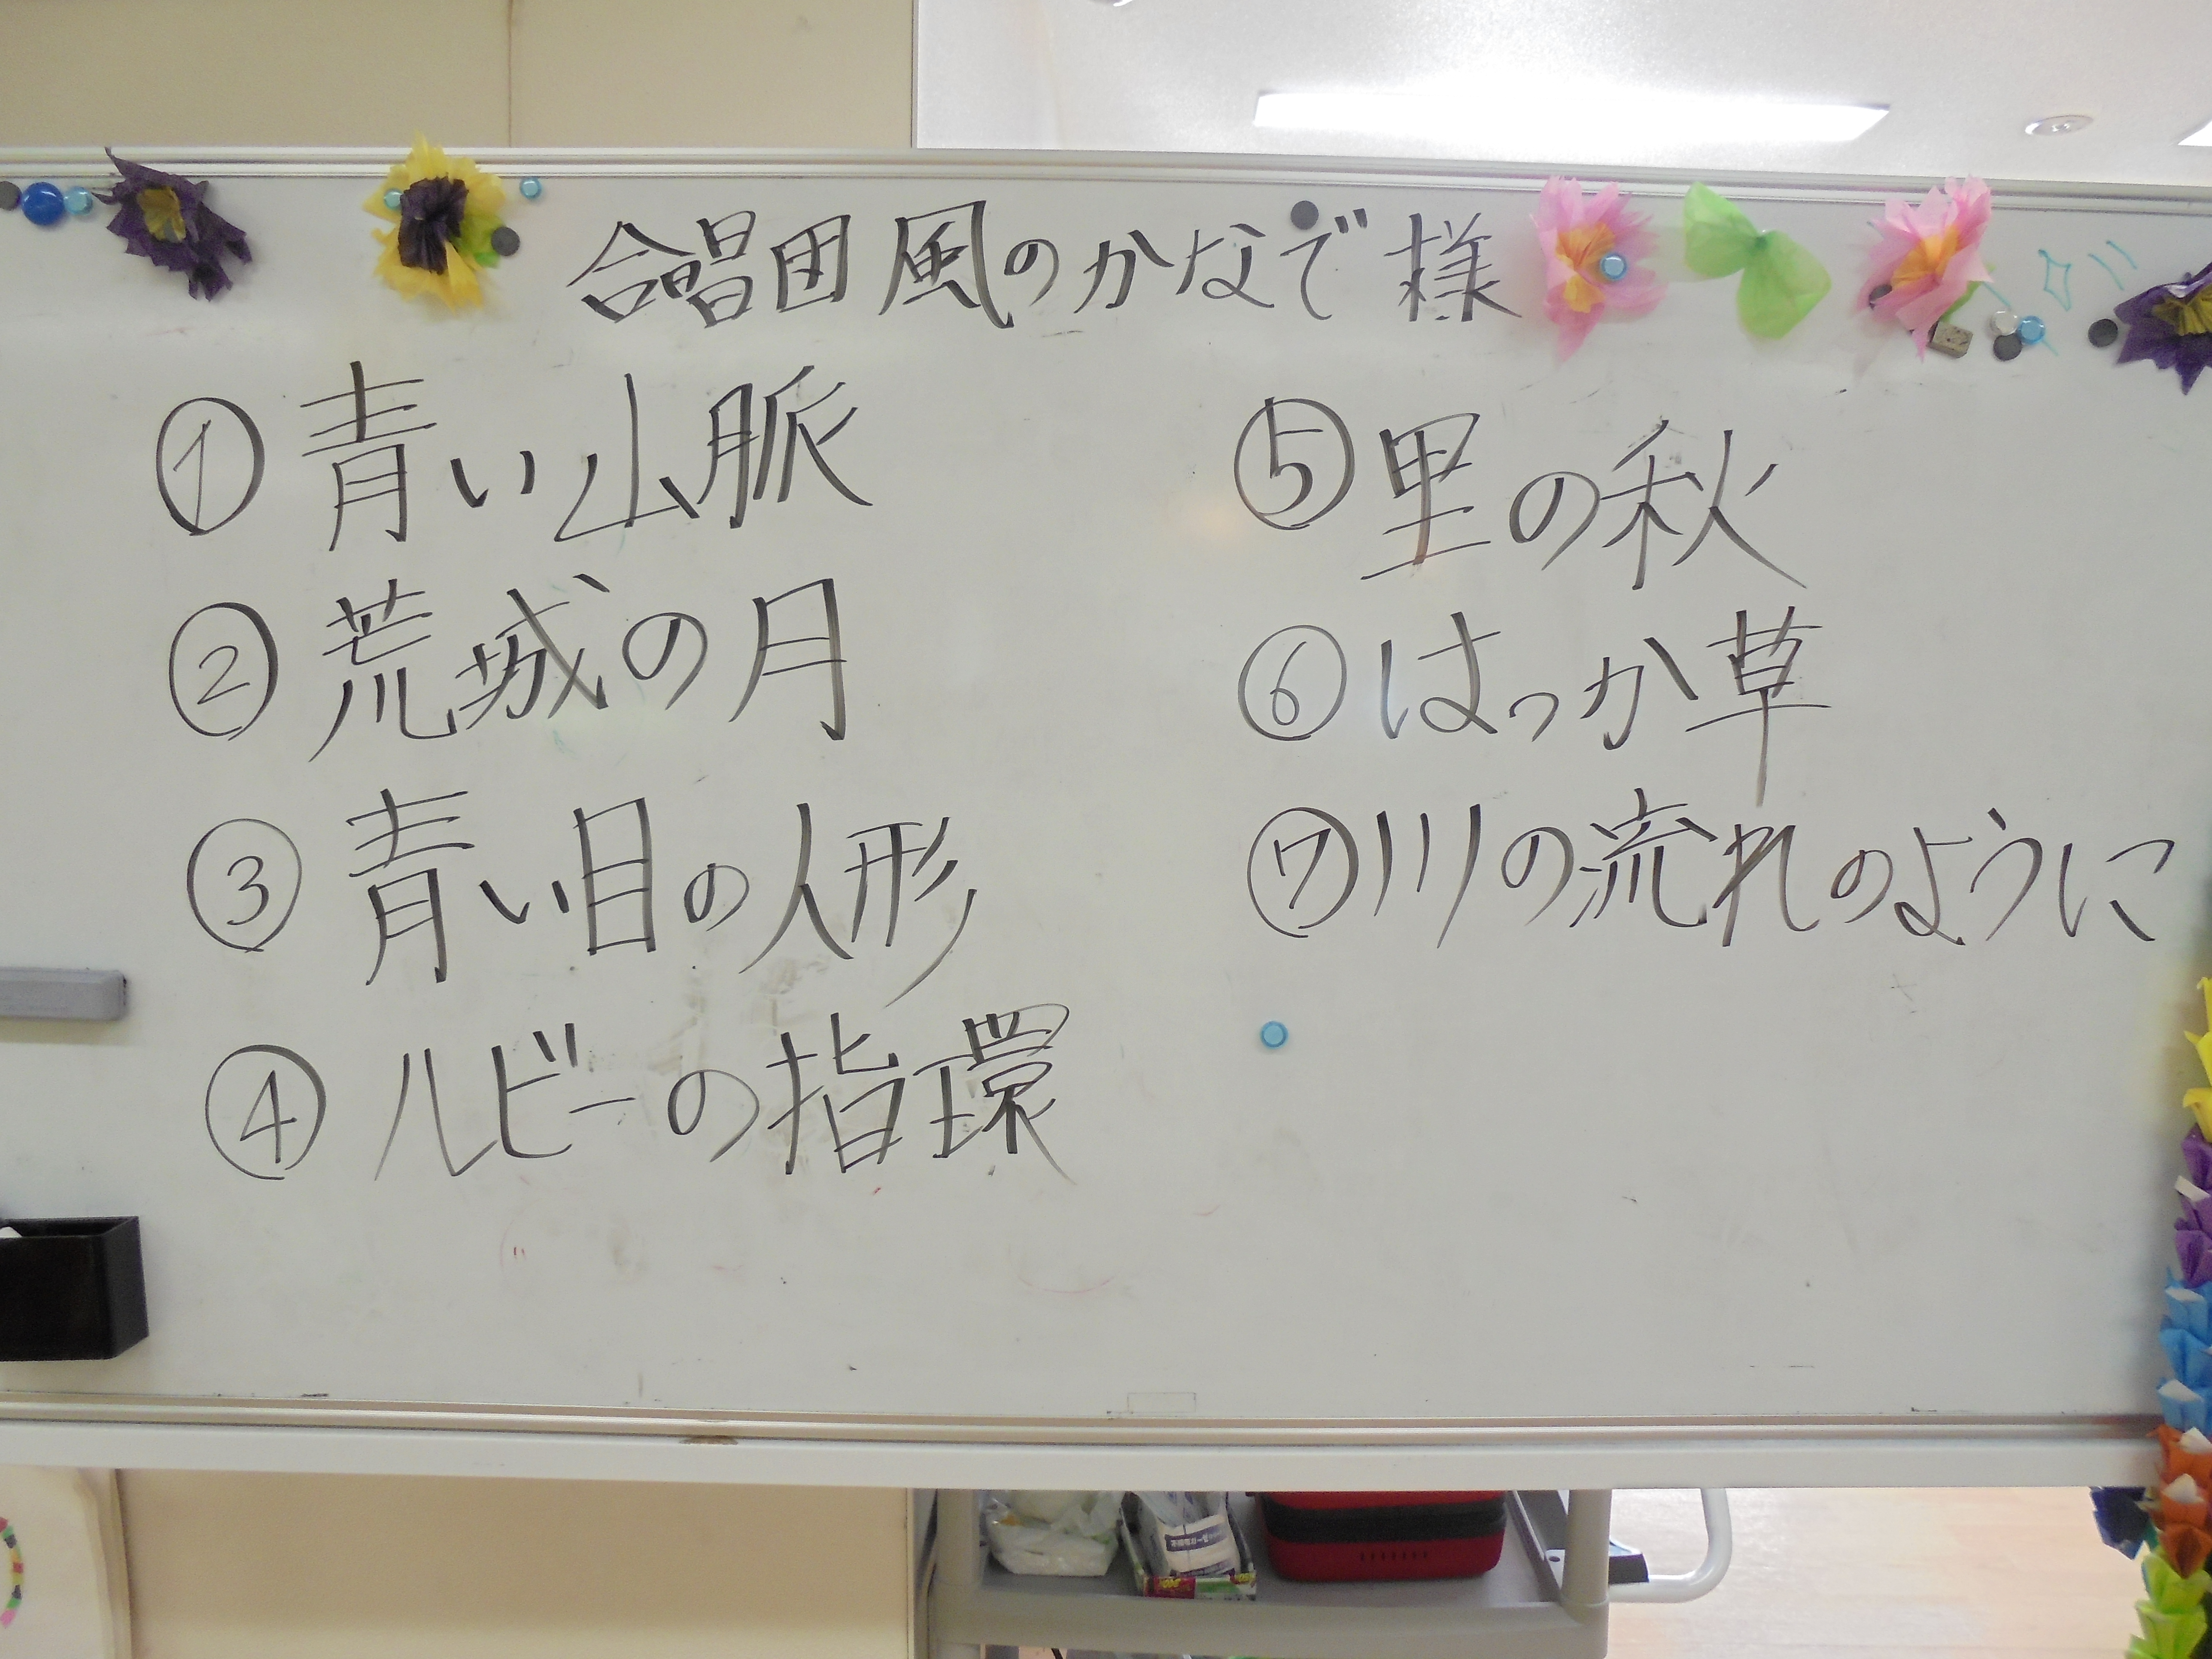 合唱団 風のかなで 様
① 青い山脈
② 荒城の月
③ 青い目の人形
④ ルビーの指環
⑤ 里の秋
⑥ はっか草
⑦ 川の流れのように